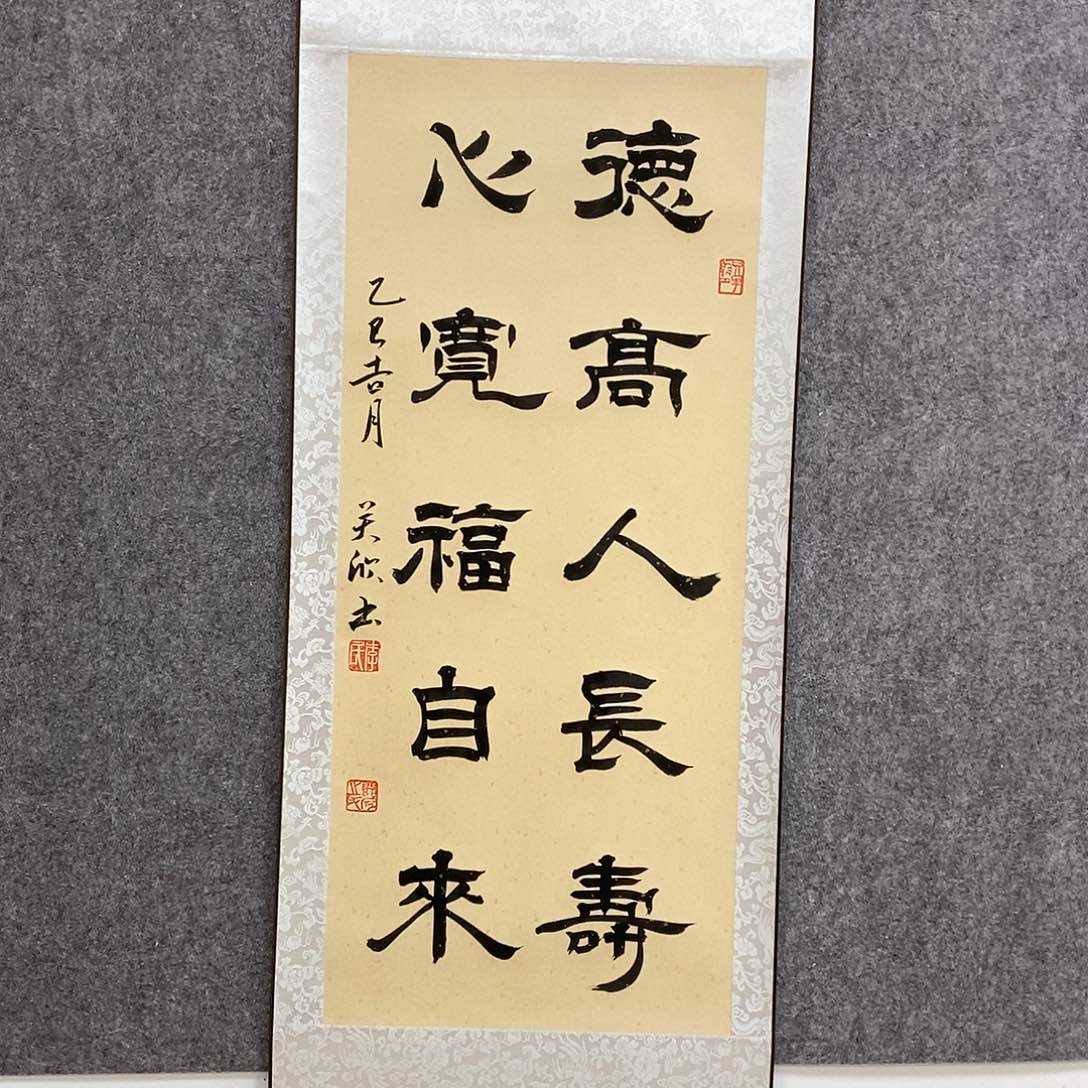 德高人長壽
心寬福自來
乙巳吉月
欣书